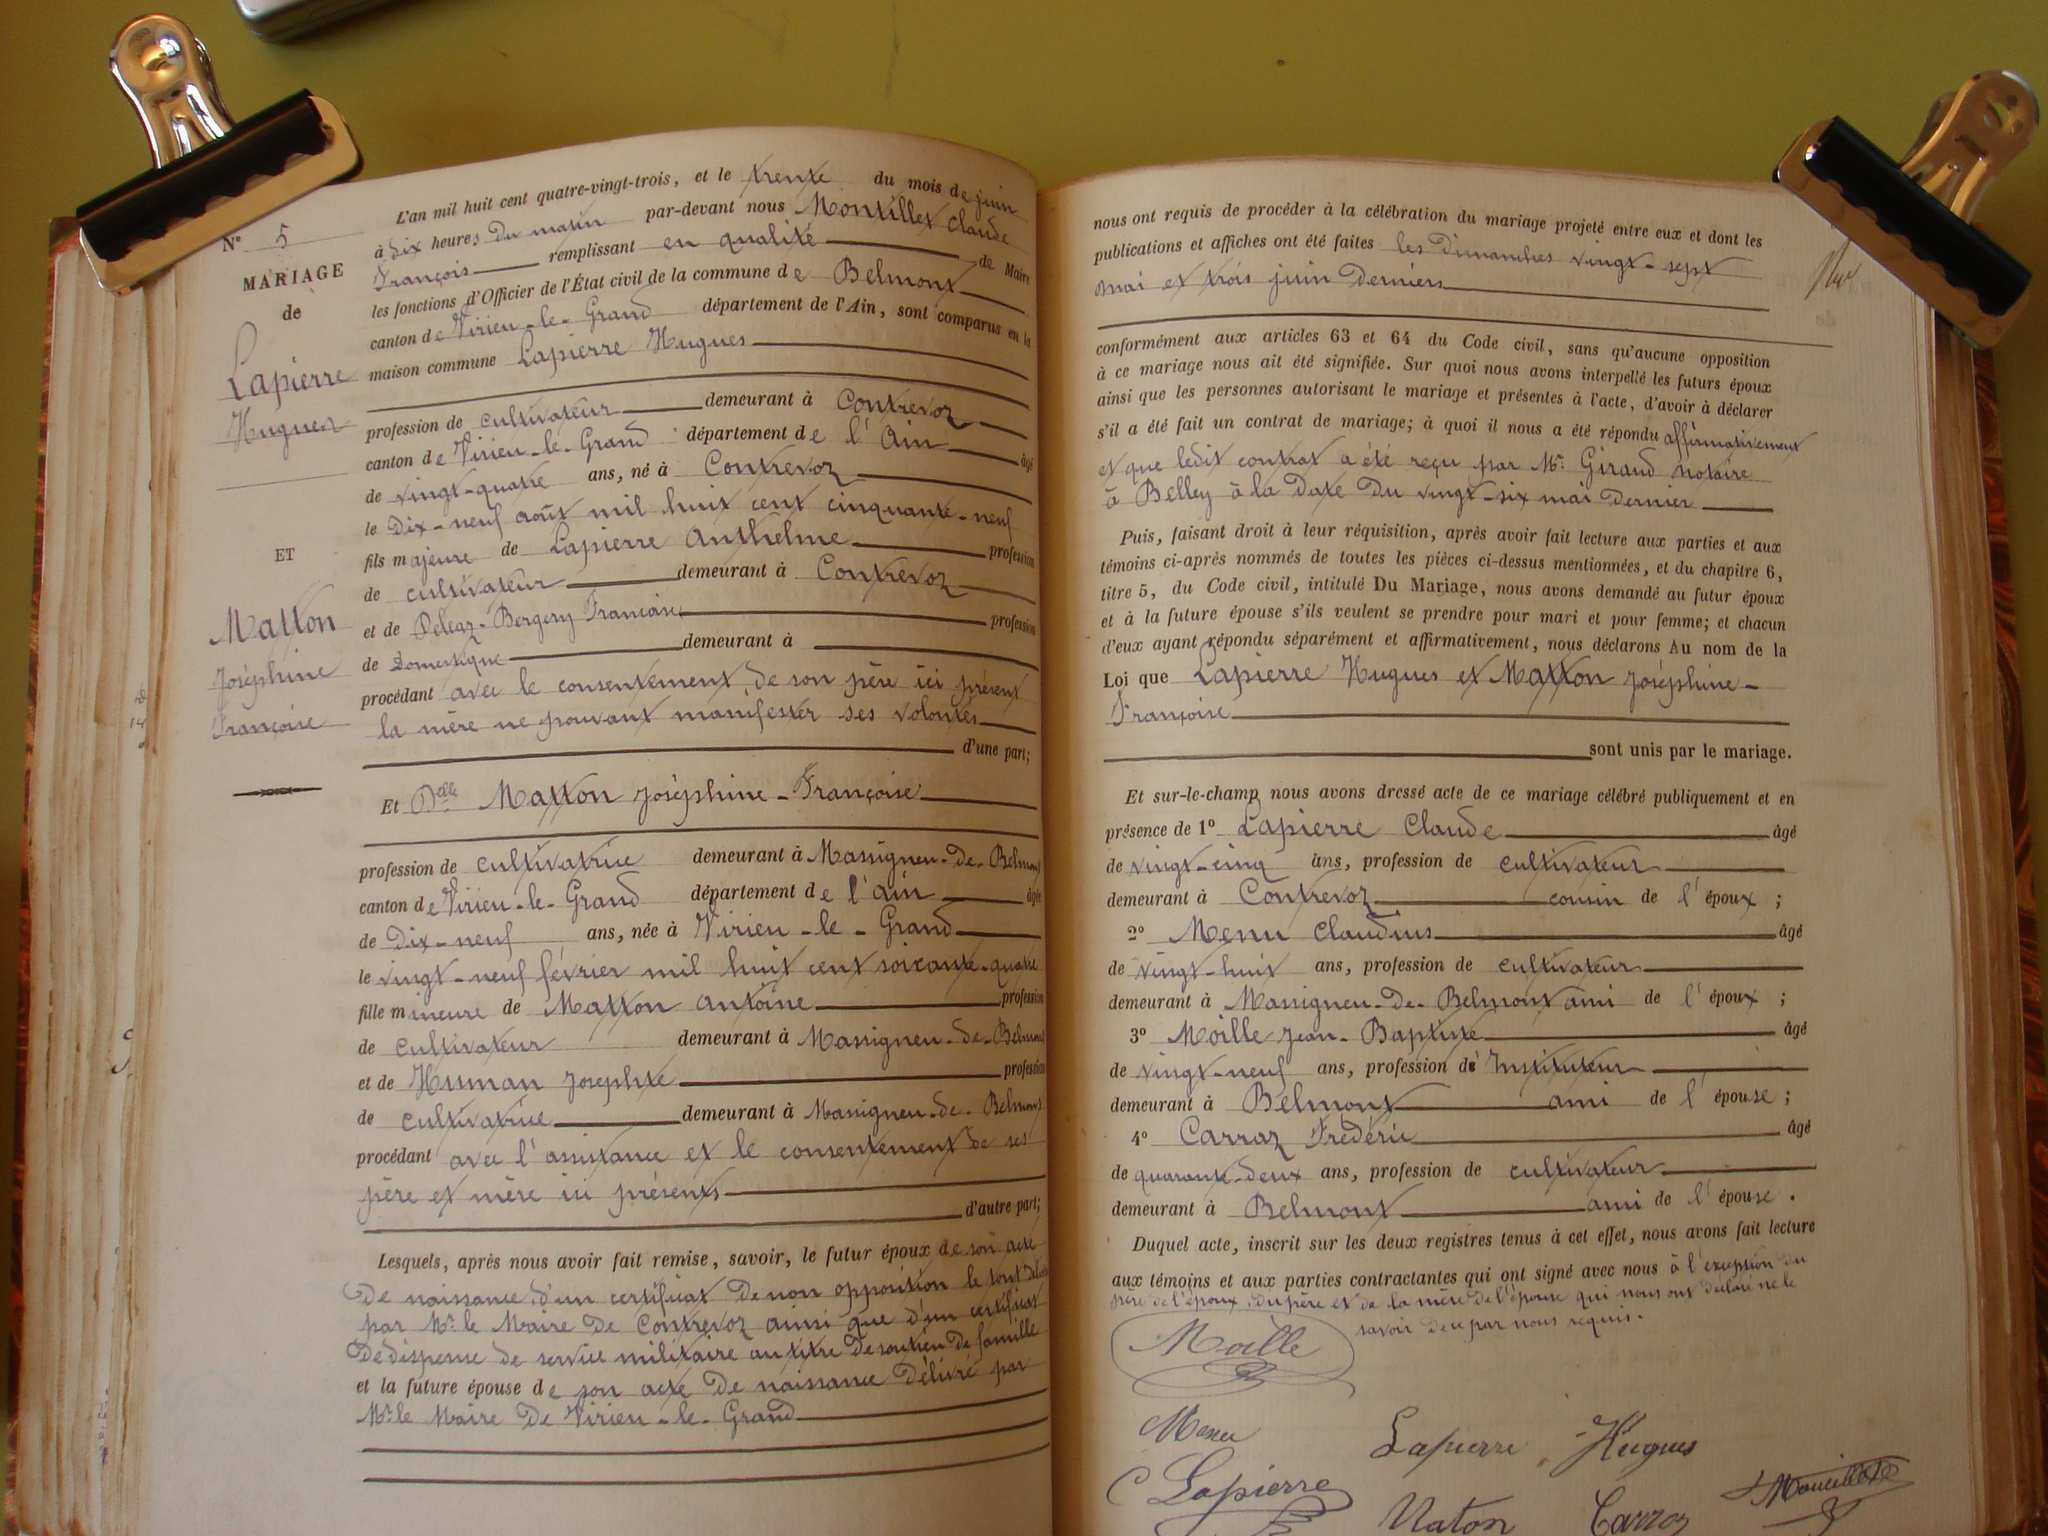 N° 5
MARIAGE
de
Lapierre
Hugues
ET
Matton
Joséphine
Françoise
L'an mil huit cent quatre-vingt-trois, et le trente du mois de juin
à dix heures du matin par-devant nous Montillet Claude
François remplissant en qualité de Maire
les fonctions d'Officier de l'État civil de la commune de Belmont
canton de Virieu-le-Grand département de l'Ain, sont comparus en la
maison commune Lapierre Hugues
profession de cultivateur demeurant à Contrevoz
canton de Virieu-le-Grand département de l'Ain âgé
de vingt-quatre ans, né à Contrevoz
le dix-neuf août mil huit cent cinquante-neuf
fils majeure de Lapierre Anthelme profession
de cultivateur demeurant à Contrevoz
et de Bergery Françoise profession
de Domestique demeurant à
procédant avec le consentement de son père ici présent
la mère ne pouvant manifester ses volontés
d'une part;
Et Delle Matton Joséphine-Françoise
profession de cultivatrice demeurant à Massigneu-de-Belmont
canton de Virieu-le-Grand département de l'Ain âgée
de Dix-neuf ans, née à Virieu-le-Grand
le vingt-neuf février mil huit cent soixante-quatre
fille mineure de Matton Antoine profession
de cultivateur demeurant à Massigneu-de-Belmont
et de Human Josephte profession
de cultivatrice demeurant à Massigneu-de-Belmont
procédant avec l'assistance et le consentement de ses
père et mère ici présents
d'autre part;
Lesquels, après nous avoir fait remise, savoir, le futur époux de son acte
De naissance, d'un certificat De non opposition le tout délivré
par Mr le Maire De Contrevoz ainsi que d'un certificat
De dispense de service militaire au titre De soutien De famille
et la future épouse de son acte De naissance Délivré par
Mr le Maire De Virieu-le-Grand
nous ont requis de procéder à la célébration du mariage projeté entre eux et dont les
publications et affiches ont été faites les Dimanches vingt-sept
mai et trois juin Derniers
conformément aux articles 63 et 64 du Code civil, sans qu'aucune opposition
à ce mariage nous ait été signifiée. Sur quoi nous avons interpellé les futurs époux
ainsi que les personnes autorisant le mariage et présentes à l'acte, d'avoir à déclarer
s'il a été fait un contrat de mariage; à quoi il nous a été répondu affirmativement
et que ledit contrat a été reçu par Mr Giraud notaire
à Belley à la date Du vingt-six mai Dernier
Puis, faisant droit à leur réquisition, après avoir fait lecture aux parties et aux
témoins ci-après nommés de toutes les pièces ci-dessus mentionnées, et du chapitre 6,
titre 5, du Code civil, intitulé Du Mariage, nous avons demandé au futur époux
et à la future épouse s'ils veulent se prendre pour mari et pour femme; et chacun
d'eux ayant répondu séparément et affirmativement, nous déclarons Au nom de la
Loi que Lapierre Hugues et Matton Joséphine-
Françoise
sont unis par le mariage.
Et sur-le-champ nous avons dressé acte de ce mariage célébré publiquement et en
présence de 1° Lapierre Claude âgé
de vingt-cinq ans, profession de cultivateur
demeurant à Contrevoz cousin de l'époux ;
2° Menu Claudius âgé
de vingt-huit ans, profession de cultivateur
demeurant à Massigneu-De-Belmont ami de l'époux ;
3° Moille Jean-Baptiste âgé
de vingt-neuf ans, profession d'Instituteur
demeurant à Belmont ami de l'épouse ;
4° Carraz Frédéric âgé
de quarante-deux ans, profession de cultivateur
demeurant à Belmont ami de l'épouse .
Duquel acte, inscrit sur les deux registres tenus à cet effet, nous avons fait lecture
aux témoins et aux parties contractantes qui ont signé avec nous à l'exception du
père de l'époux, du père et de la mère de l'épouse qui nous ont déclaré ne le
savoir de ce par nous requis.
Moille
Menu Lapierre Hugues
C Lapierre Maton Carraz Montillet